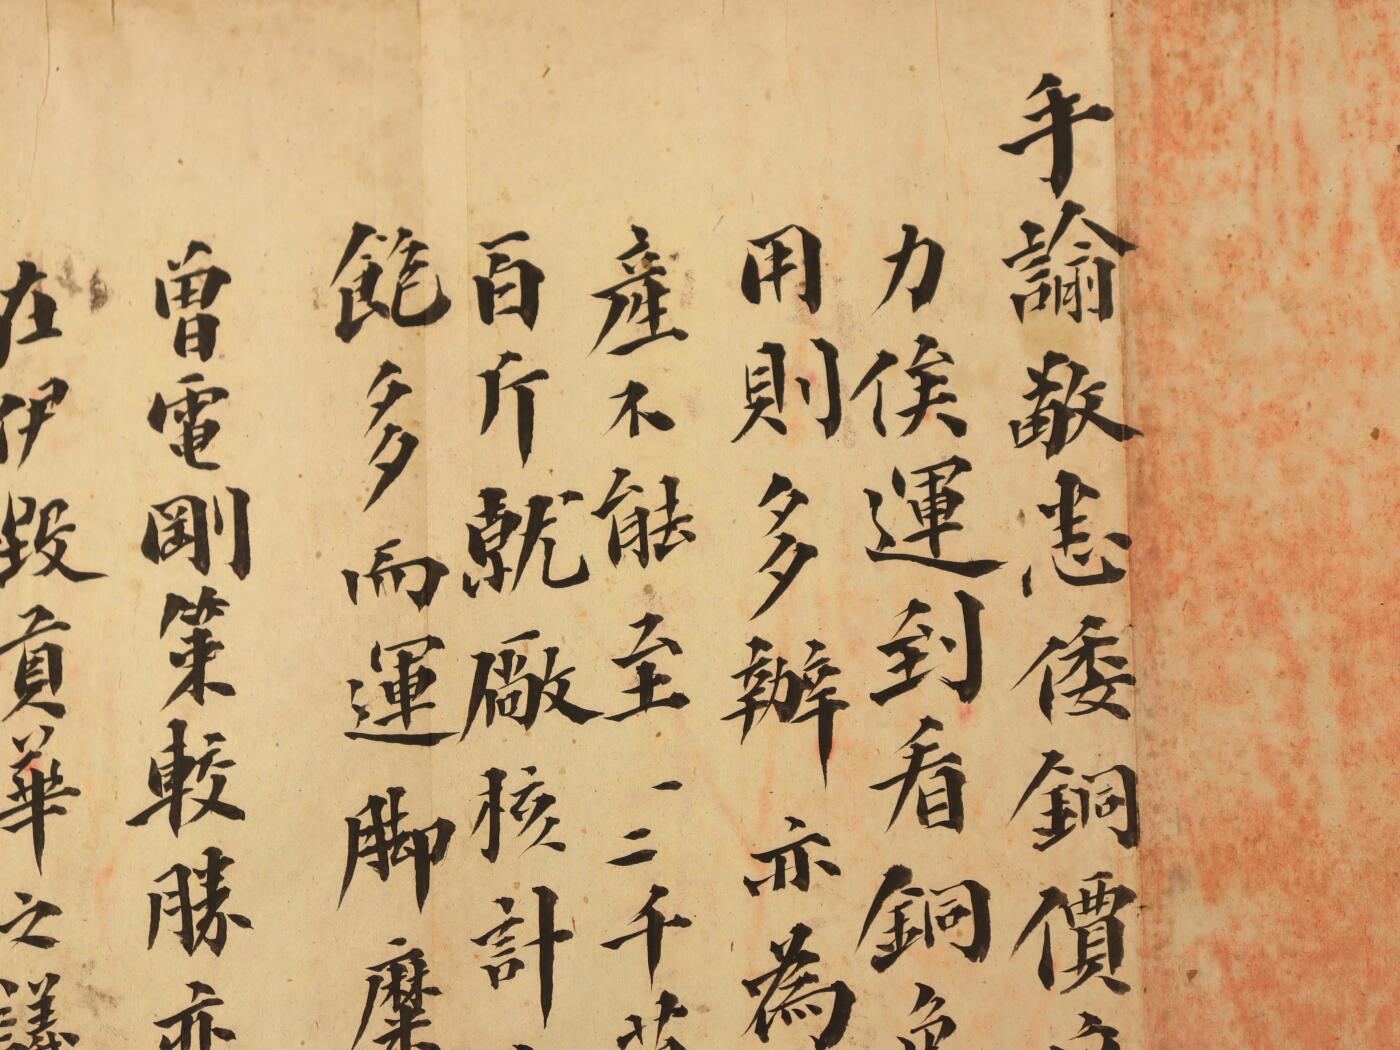 手諭敬悉倭銅價
力俟運到看銅
用則多辦亦為
產不能至一二千
百斤就廠核計
飽多而運脚糜
曾電剛策較勝亦
在伊毀貢華之議